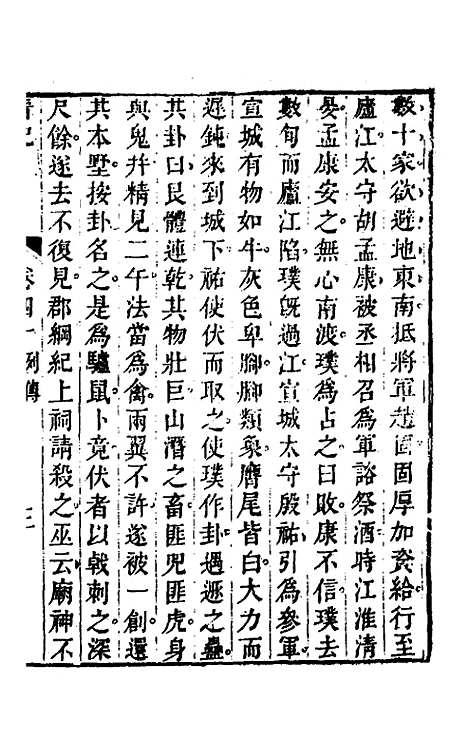 數十家欲避地東南抵將軍趙固固厚加資給行至
廬江太守胡孟康被丞相召爲軍諮祭酒時江淮清
晏孟康安之無心南渡璞爲占之曰敗康不信璞去
數旬而廬江陷璞旣過江宣城太守殷祐引爲參軍
宣城有物如牛灰色卑脚脚類象膺尾皆白大力而
遲鈍來到城下祐使伏而取之使璞作卦遇遯之蠱
其卦曰艮體連乾其物壯巨山潛之畜匪兕匪虎身
與鬼幷精見二午法當爲禽兩翼不許遂被一創還
其本墅按卦名之是爲驢鼠卜竟伏者以戟刺之深
尺餘遂去不復見郡綱紀上祠請殺之巫云廟神不
卷四十 列傳 三